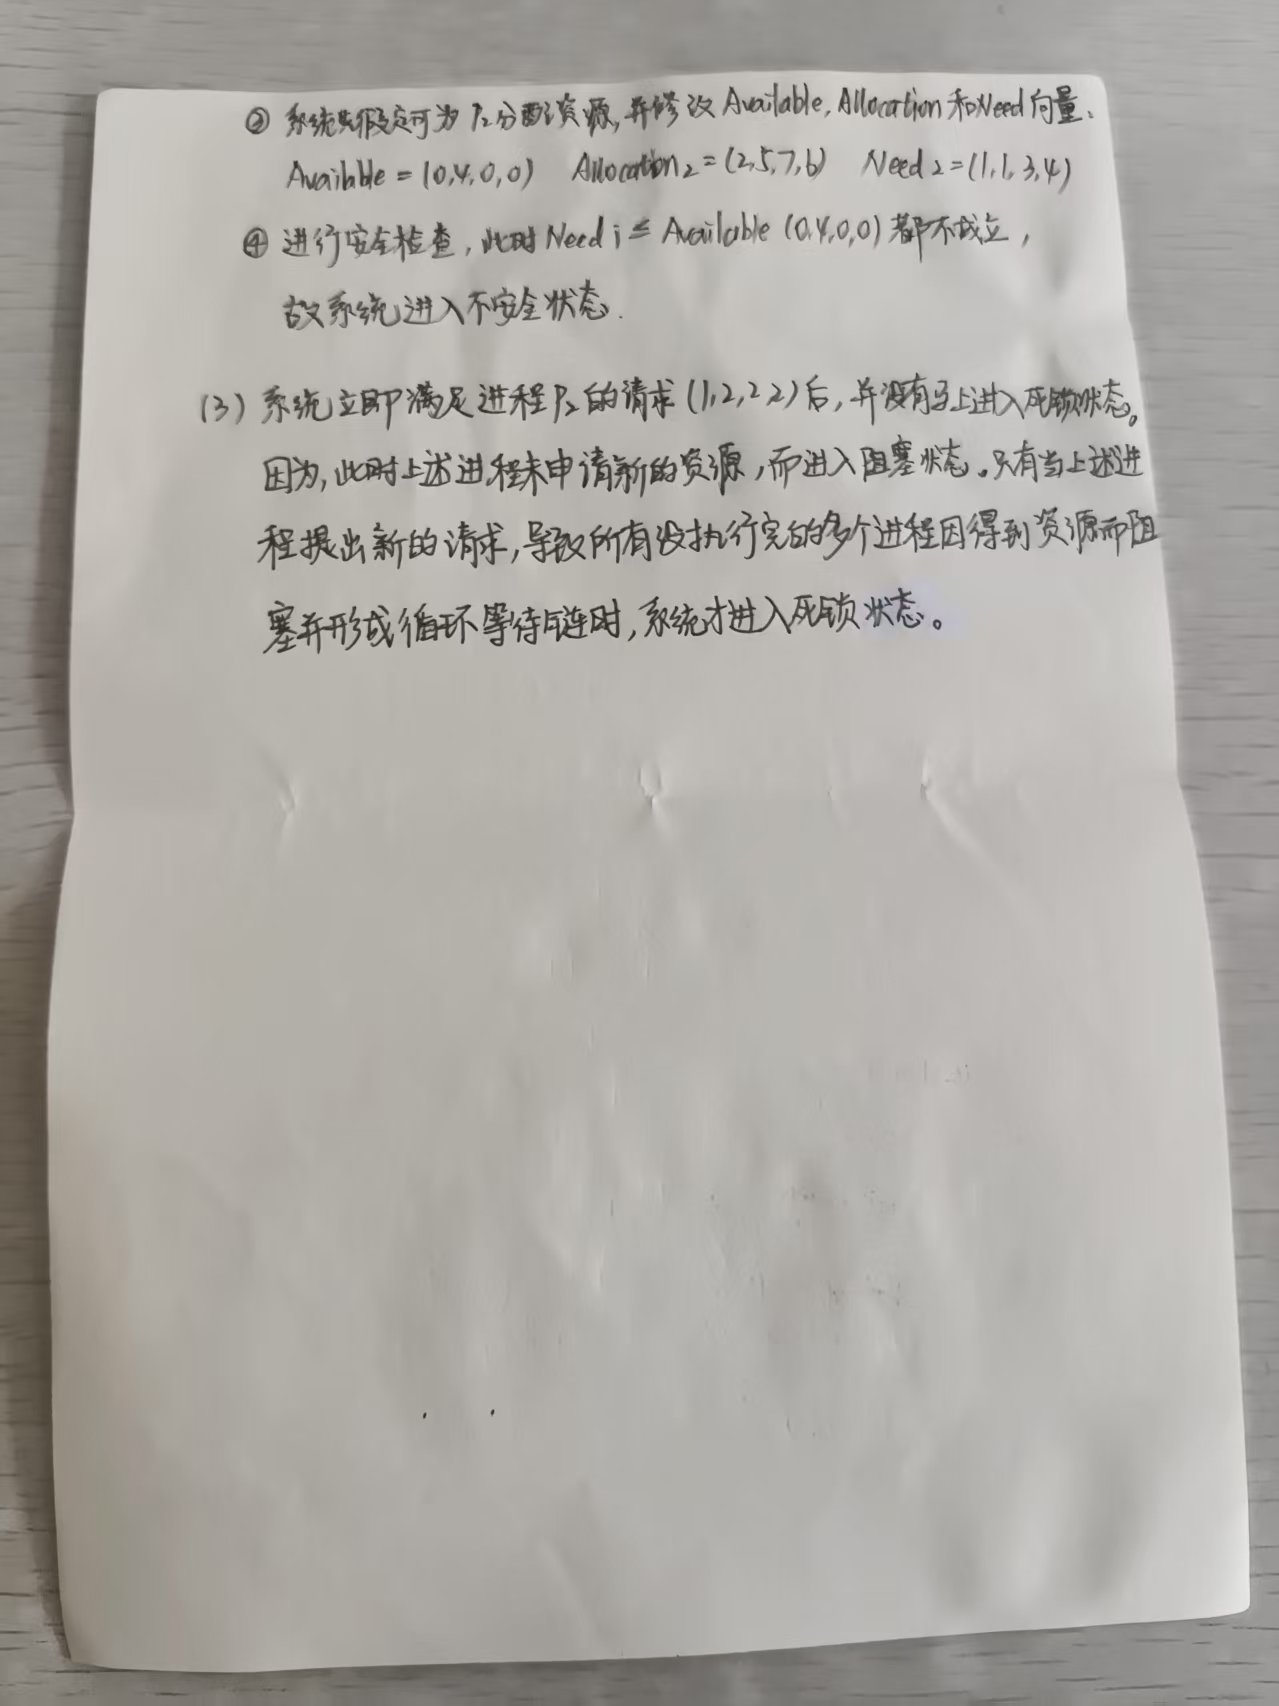 ③ 系统先假定可为P₂分配资源,并修改Available, Allocation和Need向量:
Available = (0,4,0,0) Allocation₂ = (2,5,7,6) Need₂ = (1,1,3,4)
④ 进行安全检查,此时Need i ≤ Available (0,4,0,0) 都不成立,
故系统进入不安全状态.
(3) 系统立即满足进程P₂的请求(1,2,2,2)后,并没有马上进入死锁状态。
因为,此时上述进程未申请新的资源,而进入阻塞状态。只有当上述进
程提出新的请求,导致所有没执行完的多个进程因得到资源而阻
塞并形成循环等待链时,系统才进入死锁状态。